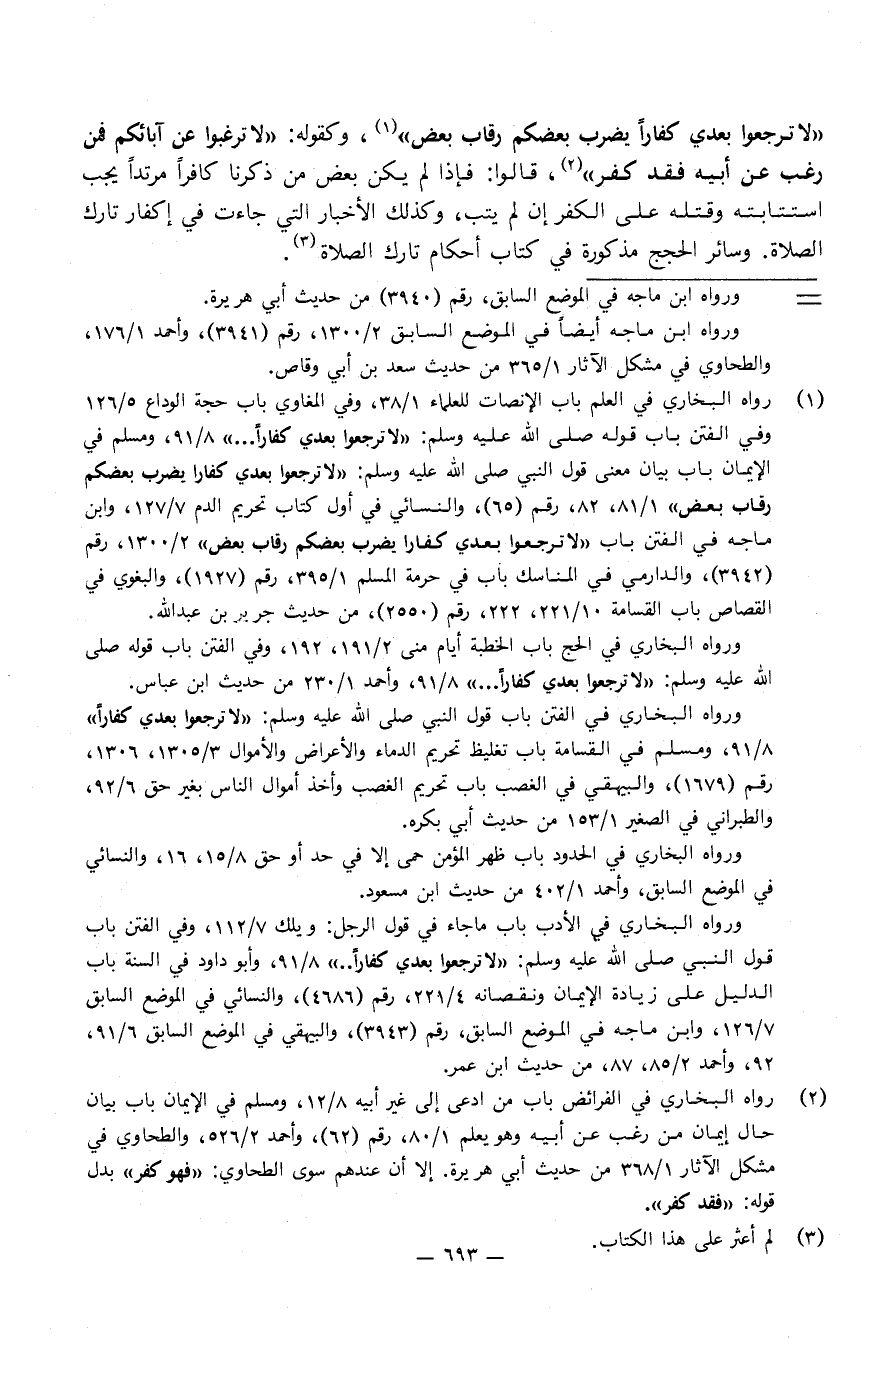 «لا ترجعوا بعدي كفاراً يضرب بعضكم رقاب بعض»(١)، وكقوله: «لا ترغبوا عن آبائكم فمن
رغب عن أبيه فقد كفر»(٢)، قالوا: فإذا لم يكن بعض من ذكرنا كافراً مرتداً يجب
استتابته وقتله على الكفر إن لم يتب، وكذلك الأخبار التي جاءت في إكفار تارك
الصلاة. وسائر الحجج مذكورة في كتاب أحكام تارك الصلاة(٣).
= ورواه ابن ماجه في الموضع السابق، رقم (٣٩٤٠) من حديث أبي هريرة.
ورواه ابن ماجه أيضاً في الموضع السابق ١٣٠٠/٢، رقم (٣٩٤١)، وأحمد ١٧٦/١،
والطحاوي في مشكل الآثار ٣٦٥/١ من حديث سعد بن أبي وقاص.
(١) رواه البخاري في العلم باب الإنصات للعلماء ٣٨/١، وفي المغاوي باب حجة الوداع ١٢٦/٥
وفي الفتن باب قوله صلى الله عليه وسلم: «لا ترجعوا بعدي كفاراً...» ٩١/٨، ومسلم في
الإيمان باب بيان معنى قول النبي صلى الله عليه وسلم: «لا ترجعوا بعدي كفارا يضرب بعضكم
رقاب بعض» ٨١/١، ٨٢، رقم (٦٥)، والنسائي في أول كتاب تحريم الدم ١٢٧/٧، وابن
ماجه في الفتن باب «لا ترجعوا بعدي كفارا يضرب بعضكم رقاب بعض» ١٣٠٠/٢، رقم
(٣٩٤٢)، والدارمي في المناسك باب في حرمة المسلم ٣٩٥/١، رقم (١٩٢٧)، والبغوي في
القصاص باب القسامة ٢٢١/١٠، ٢٢٢، رقم (٢٥٥٠)، من حديث جرير بن عبدالله.
ورواه البخاري في الحج باب الخطبة أيام منى ١٩١/٢، ١٩٢، وفي الفتن باب قوله صلى
الله عليه وسلم: «لا ترجعوا بعدي كفاراً...» ٩١/٨، وأحمد ٢٣٠/١ من حديث ابن عباس.
ورواه البخاري في الفتن باب قول النبي صلى الله عليه وسلم: «لا ترجعوا بعدي كفاراً»
٩١/٨، ومسلم في القسامة باب تغليظ تحريم الدماء والأعراض والأموال ١٣٠٥/٣، ١٣٠٦،
رقم (١٦٧٩)، والبيهقي في الغصب باب تحريم الغصب وأخذ أموال الناس بغير حق ٩٢/٦،
والطبراني في الصغير ١٥٣/١ من حديث أبي بكره.
ورواه البخاري في الحدود باب ظهر المؤمن حمى إلا في حد أو حق ١٥/٨، ١٦، والنسائي
في الموضع السابق، وأحمد ٤٠٢/١ من حديث ابن مسعود.
ورواه البخاري في الأدب باب ماجاء في قول الرجل: ويلك ١١٢/٧، وفي الفتن باب
قول النبي صلى الله عليه وسلم: «لا ترجعوا بعدي كفاراً..» ٩١/٨، وأبو داود في السنة باب
الدليل على زيادة الإيمان ونقصانه ٢٢١/٤، رقم (٤٦٨٦)، والنسائي في الموضع السابق
١٢٦/٧، وابن ماجه في الموضع السابق، رقم (٣٩٤٣)، والبيهقي في الموضع السابق ٩١/٦،
٩٢، وأحمد ٨٥/٢، ٨٧، من حديث ابن عمر.
(٢) رواه البخاري في الفرائض باب من ادعى إلى غير أبيه ١٢/٨، ومسلم في الإيمان باب بيان
حال إيمان من رغب عن أبيه وهو يعلم ٨٠/١، رقم (٦٢)، وأحمد ٥٢٦/٢، والطحاوي في
مشكل الآثار ٣٦٨/١ من حديث أبي هريرة. إلا أن عندهم سوى الطحاوي: «فهو كفر» بدل
قوله: «فقد كفر».
(٣) لم أعثر على هذا الكتاب.
— ٦٩٣ —